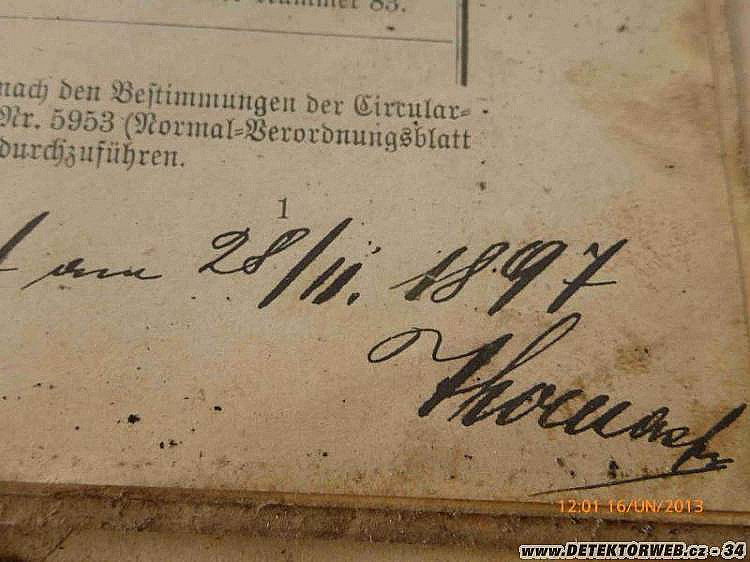 Nummer 83.
nach den Bestimmungen der Circular-
Nr. 5953 (Normal-Verordnungsblatt
durchzuführen.
1
am 28/11. 1897
12:01 16/UN/2013
www.DETEKTORWEB.cz - 34